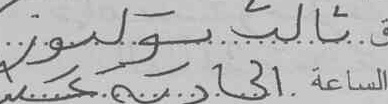 في ثالث يوليوز
الساعة الحادية عشر